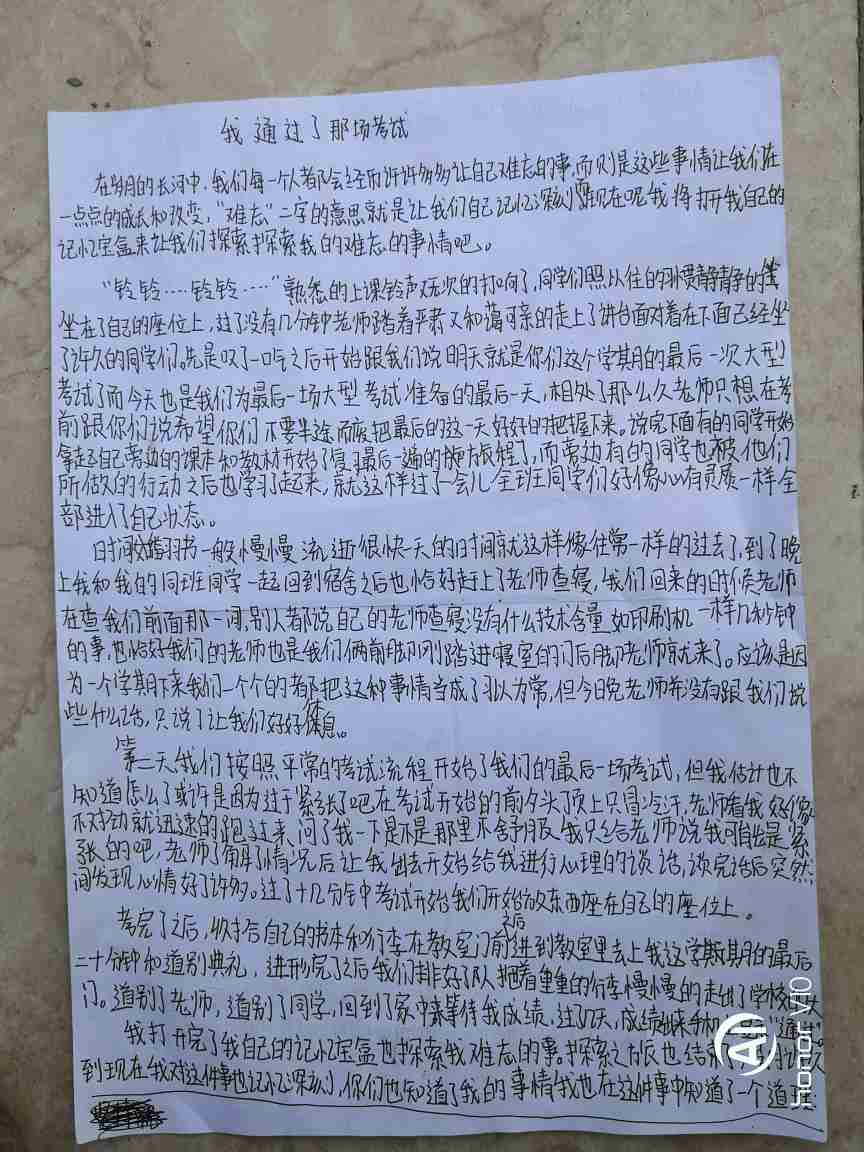 我通过了那场考试
在岁月的长河中,我们每一个人都会经历许许多多让自己难忘的事,而则是这些事情让我们在
一点点的成长和改变,"难忘"二字的意思就是让我们自己记忆深刻 现在呢我将打开我自己的
记忆宝盒来让我们探索探索我的难忘的事情吧。
"铃铃……铃铃……"熟悉的上课铃声无次的打响了,同学们照以往的习惯静静的
坐在了自己的座位上,过了没有几分钟老师踏着严肃又和蔼可亲的走上了讲台面对着在下面已经坐
了许久的同学们。先是叹了一口气之后开始跟我们说明天就是你们这个学期的最后一次大型
考试了而今天也是我们为最后一场大型考试准备的最后一天,相处了那么久老师只想在考
前跟你们说希望你们不要半途而废把最后的这一天好好的把握下来。说完下面有的同学开始
拿起自己旁边的课本和教材开始了复习最后一遍的旅程了,而旁边有的同学也被他们
所做的行动之后也学习了起来,就这样过了一会儿全班同学们好像心有灵质一样全
部进了自己状态。
时间 翻书一般慢慢流逝很快一天的时间就这样像往常一样的过去了,到了晚
上我和我的同班同学一起回到宿舍之后也恰好赶上了老师查寝,我们回来的时候老师
在查我们前面那一间,别人都说自己的老师查寝没有什么技术含量如印刷机一样几秒钟
的事,也恰好我们的老师也是我们俩前脚刚踏进寝室的门后脚老师就来了。应该是因
为一个学期下来我们一个个的都把这种事情当成了习以为常,但今日晚老师并没有跟我们说
些什么话,只说了让我们好好休息。
第二天我们按照平常的考试流程开始了我们的最后一场考试,但我估计也不
知道怎么了或许是因为过于紧张了吧在考试开始的前夕头顶上只冒冷汗,老师看我好像
不对劲就迅速的跑过来,问了我一下是不是那里不舒服我只给老师说我可能是紧
张的吧,老师了解了情况后让我出去开始给我进行心理的谈话,谈完话后突然
间发现心情好了许多。过了十几分钟中考试开始我们开始放东西座在自己的座位上。
考完了之后,收拾后自己的书本和行李在教室门前之后进到教室里去上我这学期的最后
二十分钟和道别典礼,进形完了之后我们排好了队把着重重的行李慢慢的走出了学校大
门。道别了老师,道别了同学,回到了家中来等待我成绩,过了几天,成绩出来手机 "通过"。
我打开完了我自己的记忆宝盒也探索我难忘的事。探索之旅也结束
到现在我对这件事也记忆深刻,你们也知道了我的事情我也在这件事中知道了一个道理:
HONOR V10